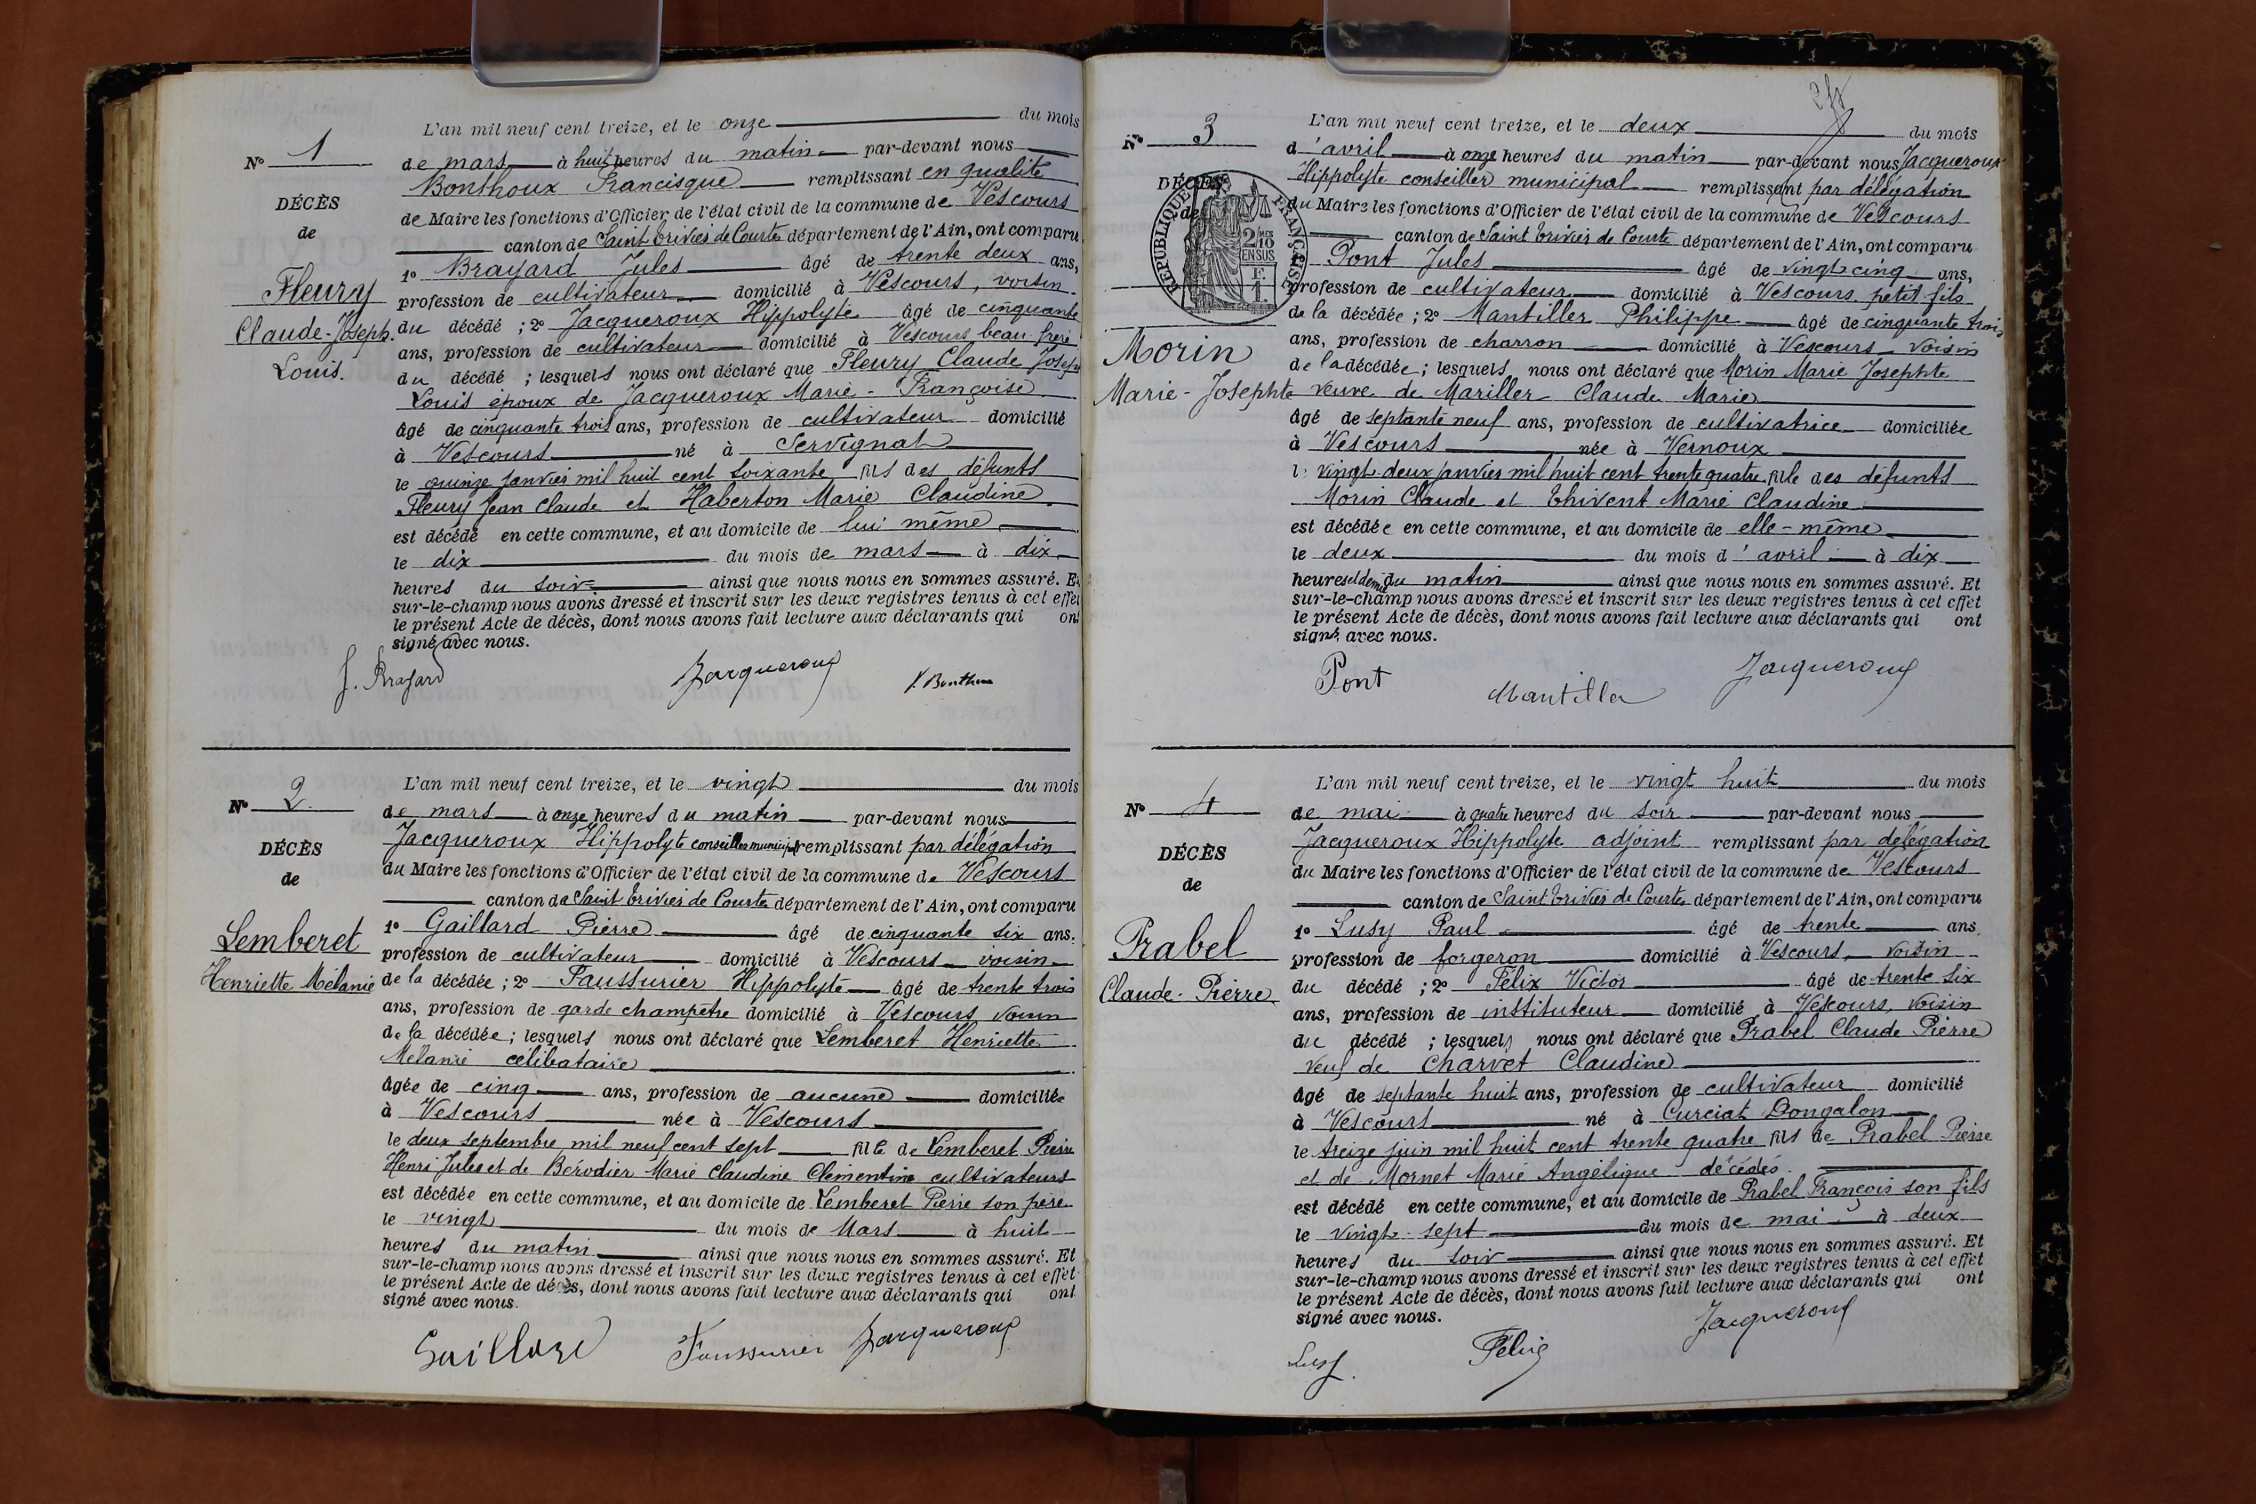 N° 1
DÉCÈS
de
Fleury
Claude-Joseph
Louis.
L'an mil neuf cent treize, et le onze du mois
de mars à huit heures du matin par-devant nous
Bonthoux Francisque remplissant en qualité
de Maire les fonctions d'Officier de l'état civil de la commune de Vescours
canton de Saint Trivier de Courtes département de l'Ain, ont comparu
1° Brayard Jules âgé de trente deux ans,
profession de cultivateur domicilié à Vescours, voisin
du décédé ; 2° Jacqueroux Hippolyte âgé de cinquante
ans, profession de cultivateur domicilié à Vescours beau frère
du décédé ; lesquels nous ont déclaré que Fleury Claude Joseph
Louis époux de Jacqueroux Marie-Françoise
âgé de cinquante trois ans, profession de cultivateur domicilié
à Vescours né à Servignat
le quinze janvier mil huit cent soixante fils des défunts
Fleury Jean Claude et Haberton Marie Claudine
est décédé en cette commune, et au domicile de lui même
le dix du mois de mars à dix
heures du soir ainsi que nous nous en sommes assuré. Et
sur-le-champ nous avons dressé et inscrit sur les deux registres tenus à cet effet
le présent Acte de décès, dont nous avons fait lecture aux déclarants qui ont
signé avec nous.
J. Brayard Jacqueroux F. Bonthoux
N° 2
DÉCÈS
de
Lemberet
Henriette Mélanie
L'an mil neuf cent treize, et le vingt du mois
de mars à onze heures du matin par-devant nous
Jacqueroux Hippolyte conseiller municipal remplissant par délégation
du Maire les fonctions d'Officier de l'état civil de la commune de Vescours
canton de Saint Trivier de Courtes département de l'Ain, ont comparu
1° Gaillard Pierre âgé de cinquante six ans,
profession de cultivateur domicilié à Vescours voisin
de la décédée ; 2° Faussurier Hippolyte âgé de trente trois
ans, profession de garde champêtre domicilié à Vescours voisin
de la décédée ; lesquels nous ont déclaré que Lemberet Henriette
Mélanie célibataire
âgée de cinq ans, profession de aucune domiciliée
à Vescours née à Vescours
le deux septembre mil neuf cent sept fille de Lemberet Pierre
Henri Jules et de Bérodier Marie Claudine Clémentine cultivateurs
est décédée en cette commune, et au domicile de Lemberet Pierre son père
le vingt du mois de Mars à huit
heures du matin ainsi que nous nous en sommes assuré. Et
sur-le-champ nous avons dressé et inscrit sur les deux registres tenus à cet effet
le présent Acte de décès, dont nous avons fait lecture aux déclarants qui ont
signé avec nous.
Gaillard Faussurier Jacqueroux
N° 3
DÉCÈS
de
RÉPUBLIQUE FRANÇAISE
2/10
EN SUS
F.
1.
Morin
Marie-Josephte
L'an mil neuf cent treize, et le deux du mois
d'avril à onze heures du matin par-devant nous Jacqueroux
Hippolyte conseiller municipal remplissant par délégation
du Maire les fonctions d'Officier de l'état civil de la commune de Vescours
canton de Saint Trivier de Courtes département de l'Ain, ont comparu
1° Pont Jules âgé de vingt cinq ans,
profession de cultivateur domicilié à Vescours petit fils
de la décédée ; 2° Mantiller Philippe âgé de cinquante trois
ans, profession de charron domicilié à Vescours voisin
de la décédée ; lesquels nous ont déclaré que Morin Marie Josephte
veuve de Mariller Claude Marie
âgé de septante neuf ans, profession de cultivatrice domiciliée
à Vescours née à Vernoux
le vingt-deux janvier mil huit cent trente quatre fille des défunts
Morin Claude et Thivent Marie Claudine
est décédée en cette commune, et au domicile de elle-même
le deux du mois d'avril à dix
heures et demi du matin ainsi que nous nous en sommes assuré. Et
sur-le-champ nous avons dressé et inscrit sur les deux registres tenus à cet effet
le présent Acte de décès, dont nous avons fait lecture aux déclarants qui ont
signé avec nous.
Pont Mantiller Jacqueroux
N° 4
DÉCÈS
de
Prabel
Claude-Pierre
L'an mil neuf cent treize, et le vingt huit du mois
de mai à quatre heures du soir par-devant nous
Jacqueroux Hippolyte adjoint remplissant par délégation
du Maire les fonctions d'Officier de l'état civil de la commune de Vescours
canton de Saint Trivier de Courtes département de l'Ain, ont comparu
1° Lusy Paul âgé de trente ans,
profession de forgeron domicilié à Vescours, voisin
du décédé ; 2° Félix Victor âgé de trente six
ans, profession de instituteur domicilié à Vescours, voisin
du décédé ; lesquels nous ont déclaré que Prabel Claude Pierre
veuf de Charvet Claudine
âgé de septante huit ans, profession de cultivateur domicilié
à Vescours né à Curciat Dongalon
le treize juin mil huit cent trente quatre fils de Prabel Pierre
et de Mornet Marie Angélique décédés.
est décédé en cette commune, et au domicile de Prabel François son fils
le vingt-sept du mois de mai à deux
heures du soir ainsi que nous nous en sommes assuré. Et
sur-le-champ nous avons dressé et inscrit sur les deux registres tenus à cet effet
le présent Acte de décès, dont nous avons fait lecture aux déclarants qui ont
signé avec nous.
Lusy Félix Jacqueroux